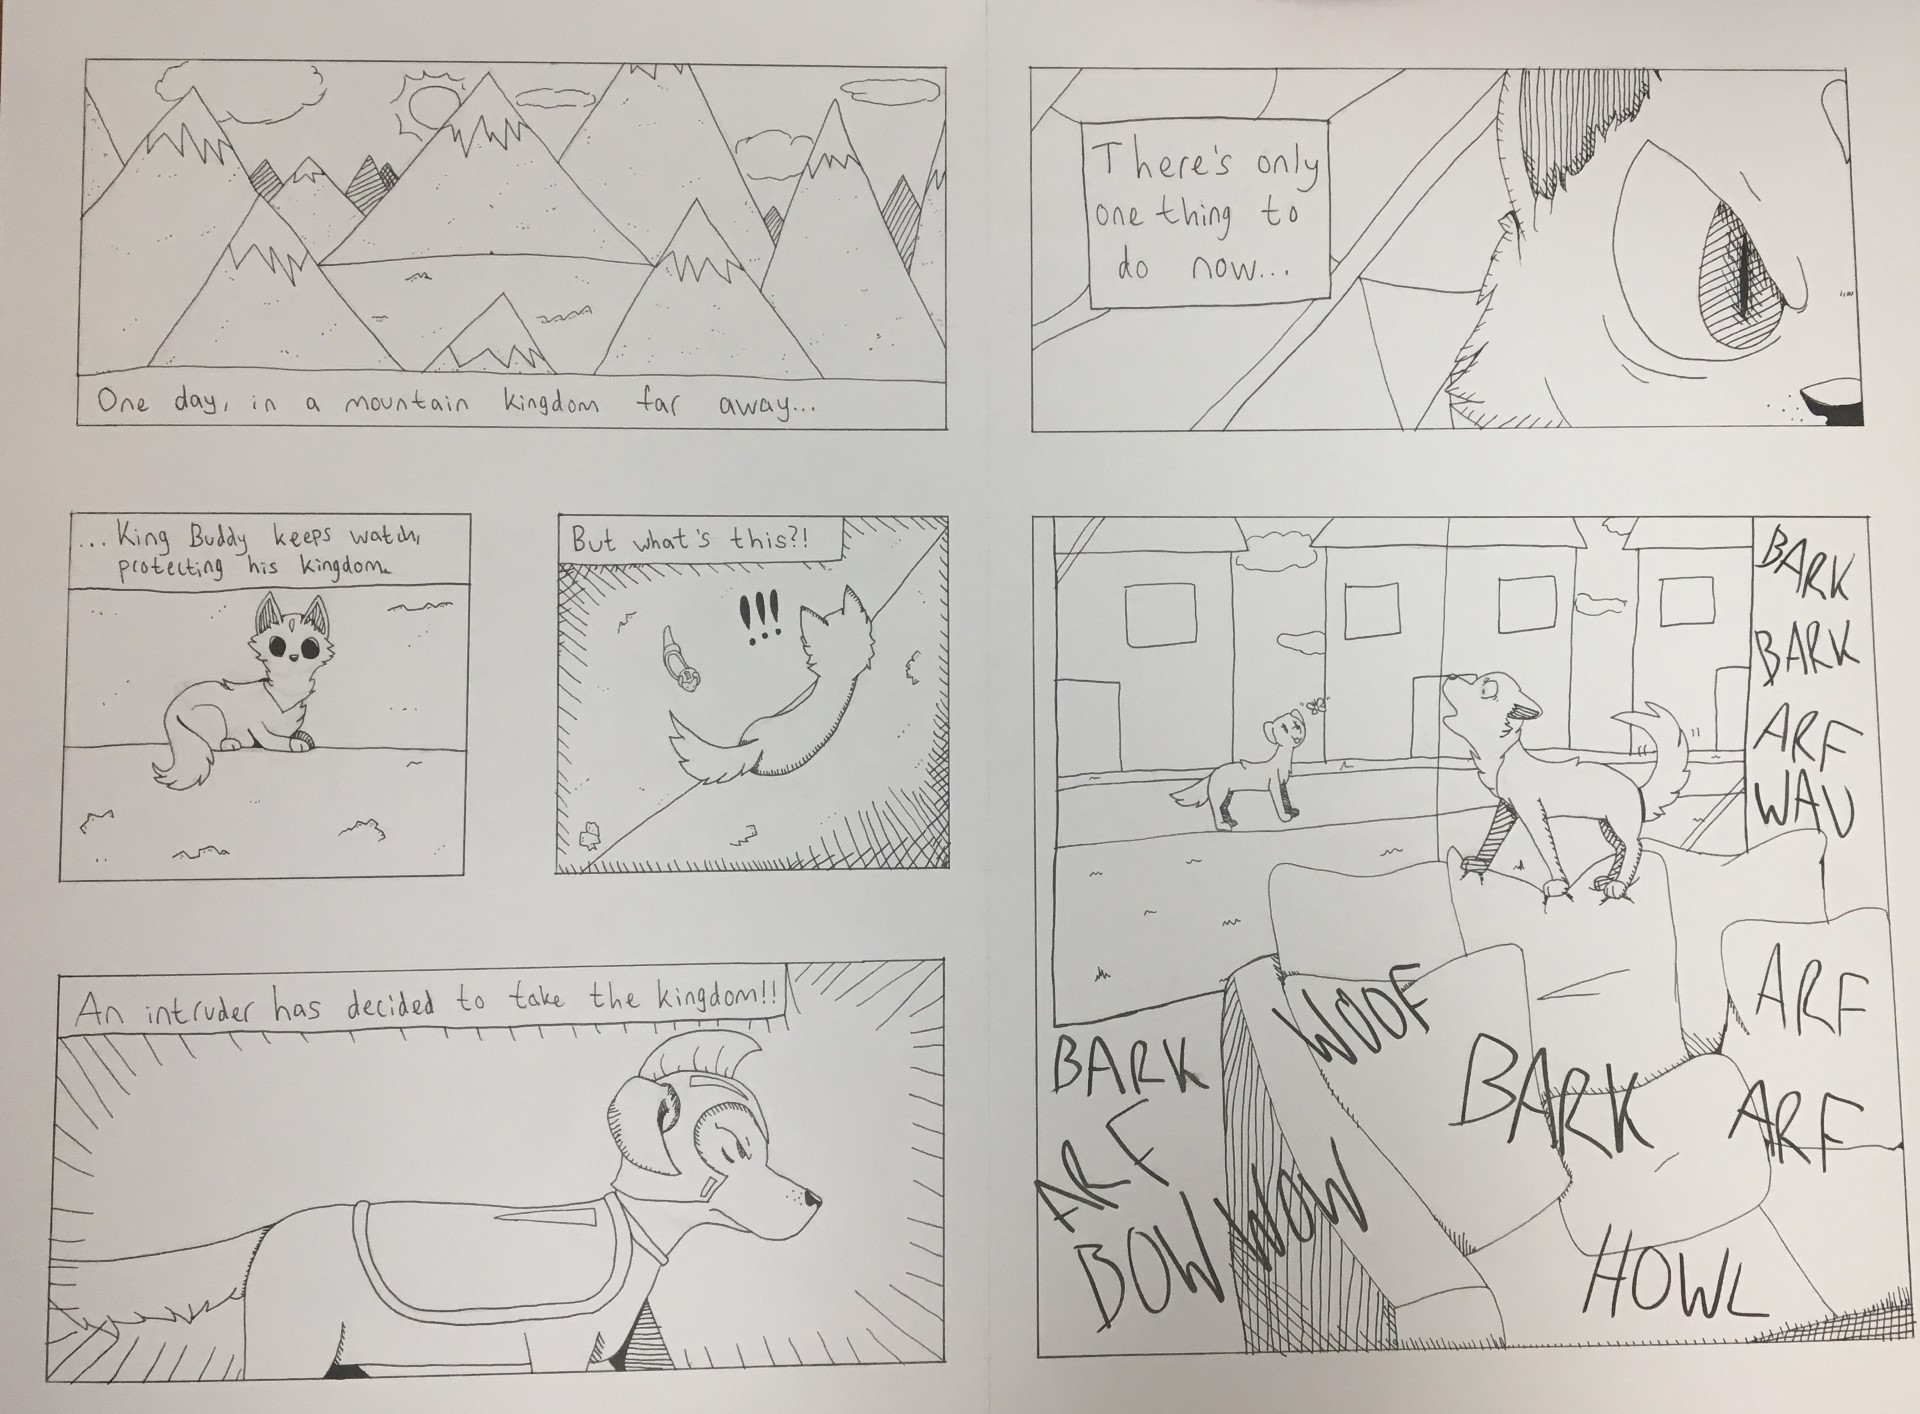 One day, in a mountain kingdom far away...
...King Buddy keeps watch,
protecting his kingdom.
But what's this?!
!!!
An intruder has decided to take the kingdom!!
There's only
one thing to
do now...
BARK
BARK
ARF
WAU
WOOF
ARF
BARK
BARK
ARF
ARF
BOW WOW
HOWL